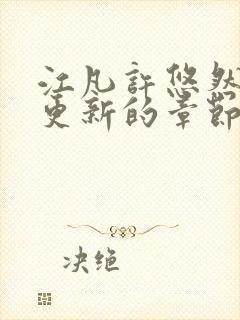 江凡許悠然
更新的章節
决绝